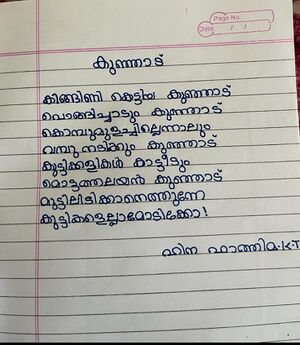 Page No.
Date: / /
കുഞ്ഞാട്
കിങ്ങിണി കെട്ടിയ കുഞ്ഞാട്
പൊങ്ങിച്ചാടും കുഞ്ഞാട്
കൊമ്പുമുളച്ചില്ലെന്നാലും
വമ്പു നടിക്കും കുഞ്ഞാട്
കുട്ടിക്കളികൾ കാട്ടീടും
മൊട്ടത്തലയൻ കുഞ്ഞാട്
മുട്ടിലിടിക്കാനെത്തുന്നേ
കുട്ടികളെല്ലാമോടിക്കോ!
ഹിന ഫാത്തിമ.k.T